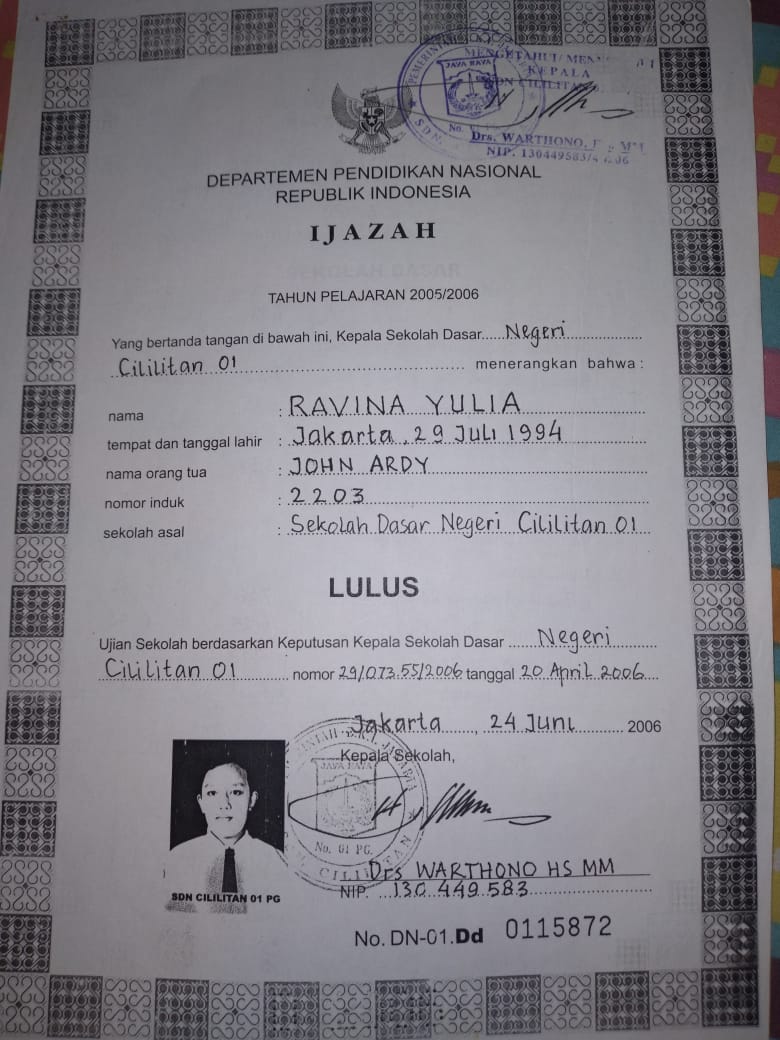 MENGETAHUI/
KEPALA
SDN CILILITAN
JAYA RAYA
No.
Drs. WARTHONO,
NIP. 130449583/
DEPARTEMEN PENDIDIKAN NASIONAL
REPUBLIK INDONESIA
IJAZAH
SEKOLAH DASAR
TAHUN PELAJARAN 2005/2006
Yang bertanda tangan di bawah ini, Kepala Sekolah Dasar......Negeri
Cililitan 01 menerangkan bahwa :
nama : RAVINA YULIA
tempat dan tanggal lahir : Jakarta, 29 Juli 1994
nama orang tua : JOHN ARDY
nomor induk : 2203
sekolah asal : Sekolah Dasar Negeri Cililitan 01
LULUS
Ujian Sekolah berdasarkan Keputusan Kepala Sekolah Dasar ......Negeri
Cililitan 01 nomor 29/073.55/2006 tanggal 20 April 2006
Jakarta, 24 Juni 2006
Kepala Sekolah,
JAYA RAYA
No. 01 PG.
CILILITAN
Drs WARTHONO HS MM
NIP. 130 449 583
SDN CILILITAN 01 PG
No. DN-01.Dd 0115872